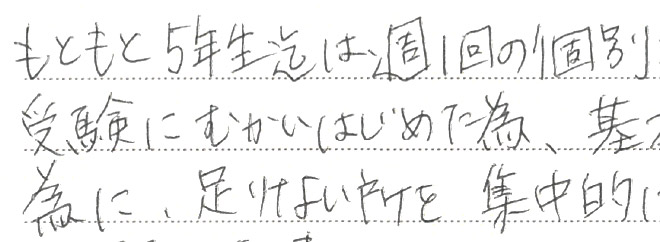 もともと5年生迄は週1回の個別
受験にむかいはじめた為、基
為に、足りない所を集中的に